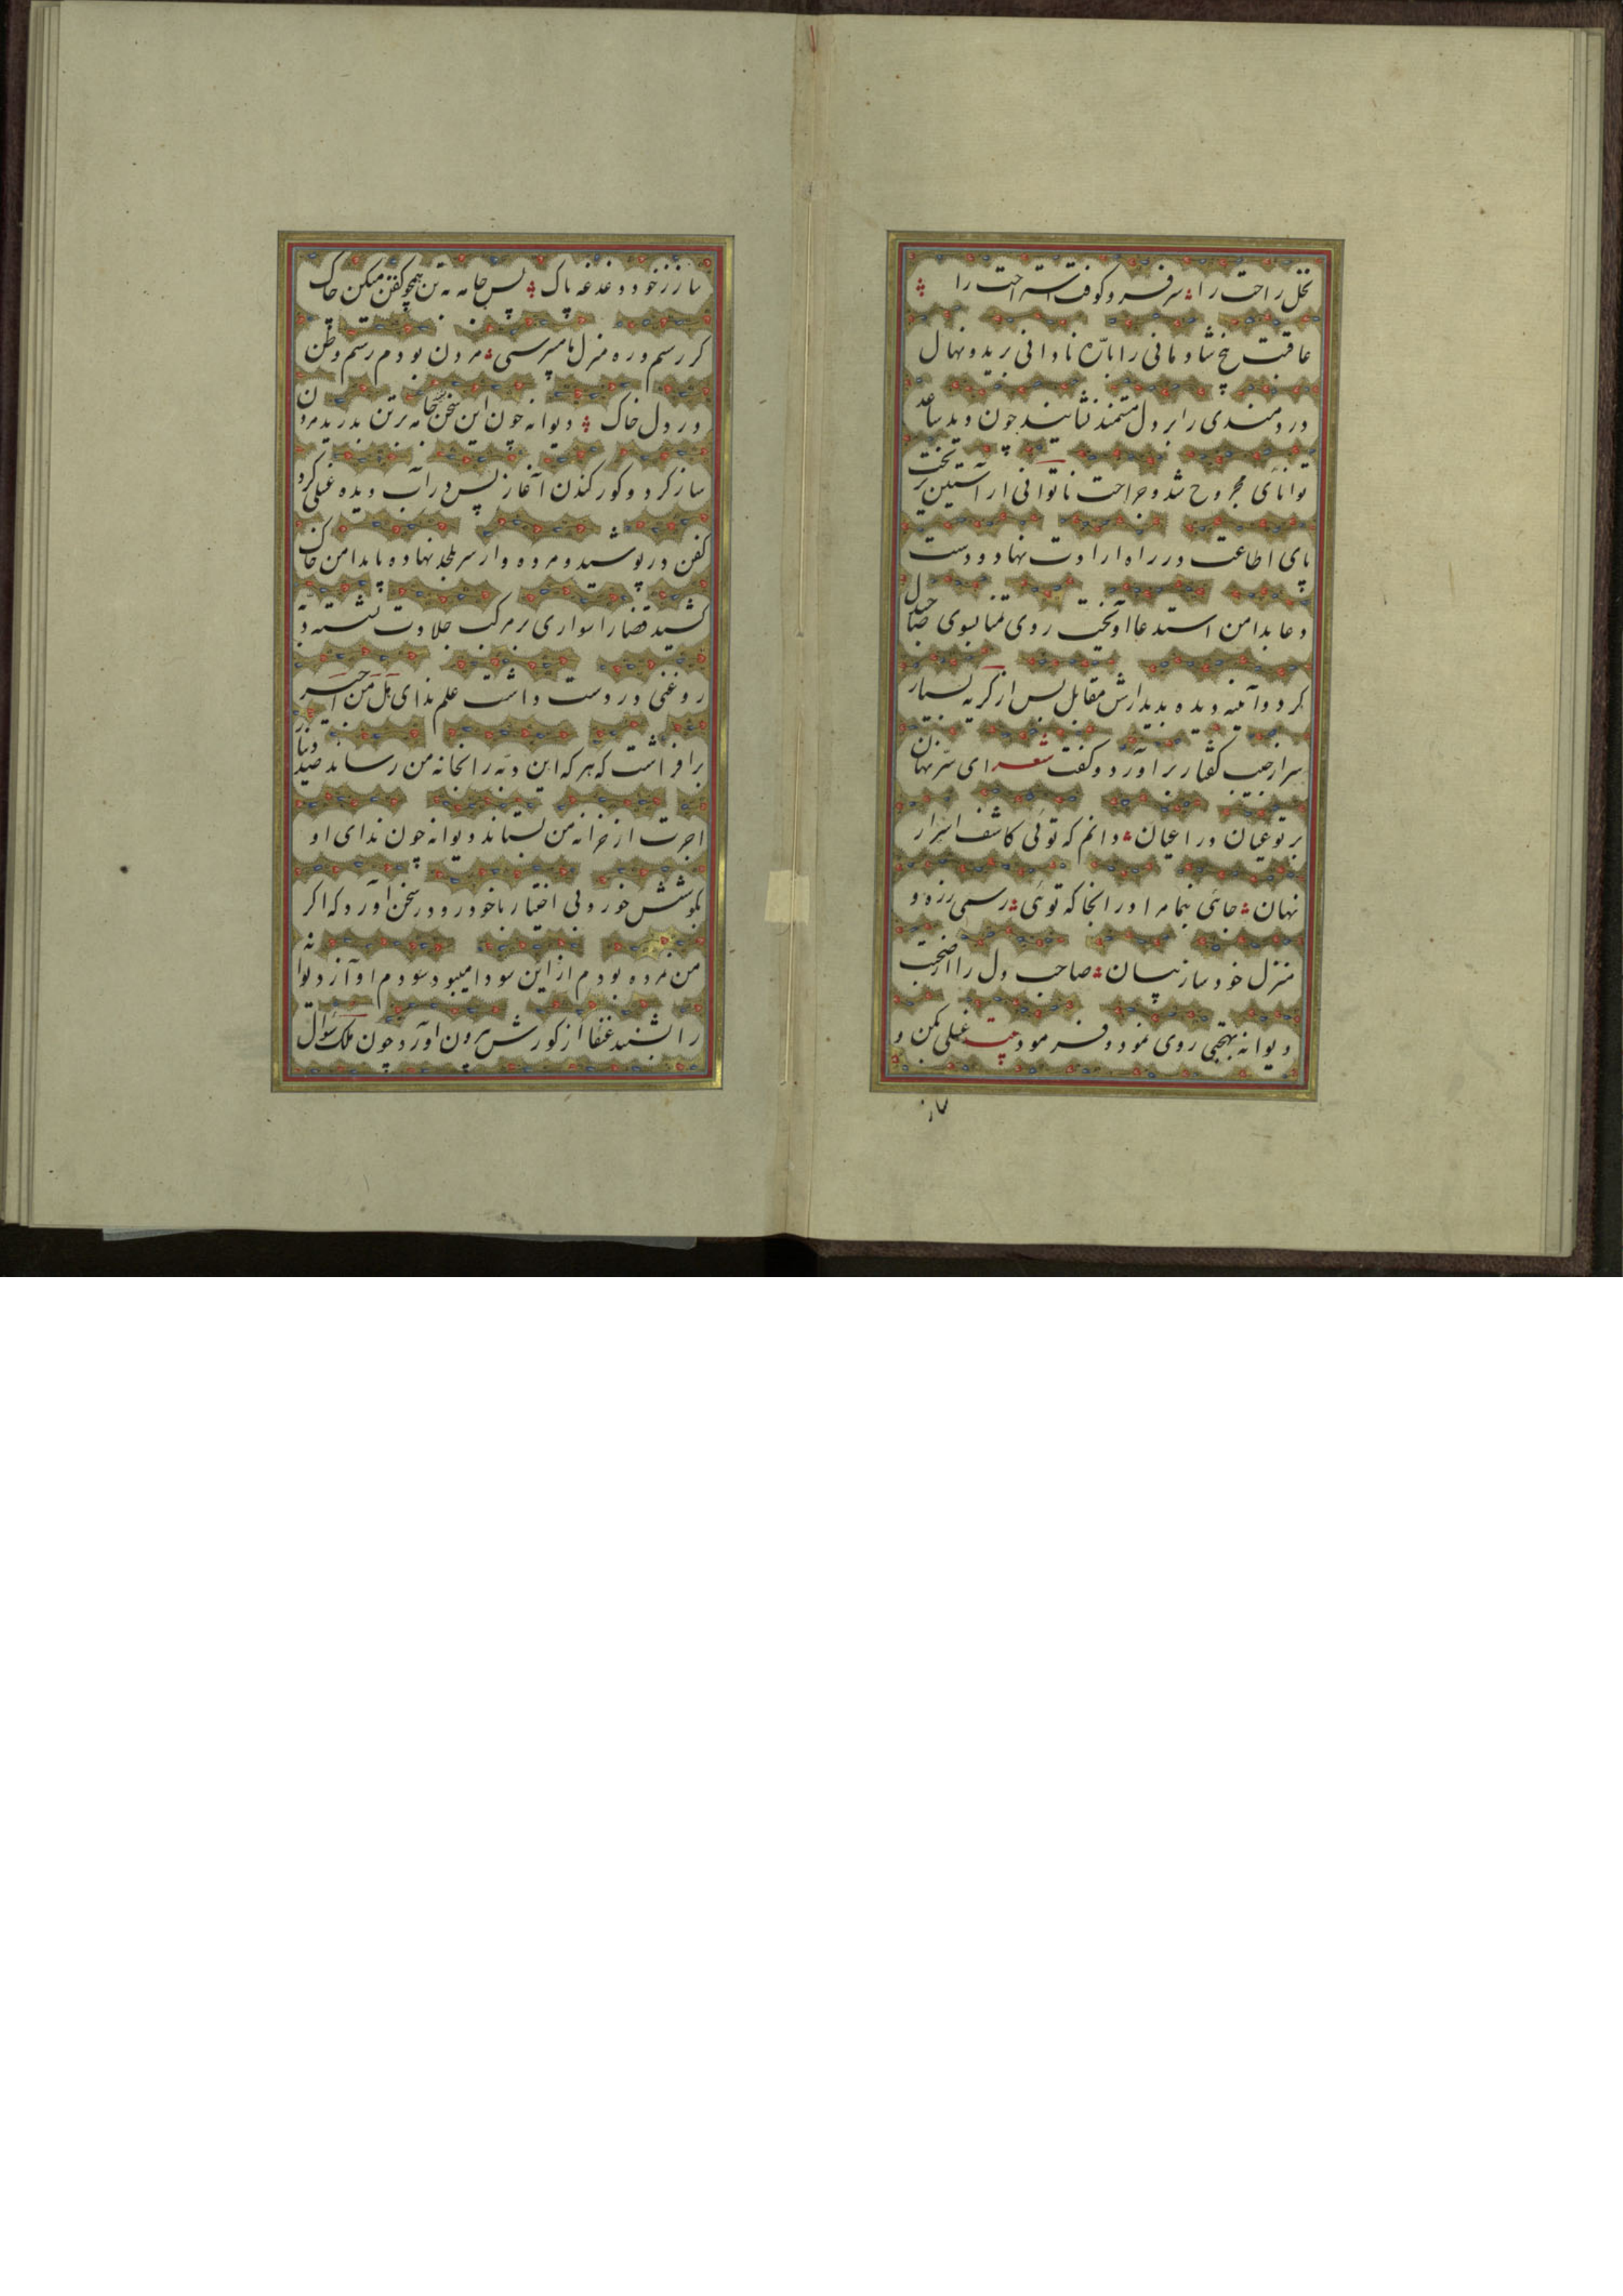 نخل راحت را سر فرو کوفت استراحت را
عاقبت بیخ شادمانی را باره نادانی برید و نهال
دردمندی را بر دل مستمند نشانید چون دید ساعد
توانائی مجروح شد و جراحت ناتوانی از آستین بر
پای اطاعت در راه ارادت نهاد و دست
دعا بدامن استدعا آویخت روی تمنا بسوی صاحبدل
کرد و آینه دیده بدیدارش مقابل پس از گریه بسیار
سر از جیب گفتار برآورد و گفت شعر ای سر نهان
بر تو عیان در اعیان دانم که توئی کاشف اسرار
نهان جائی بنما مرا در انجا که توئی رسمی ز ره و
منزل خود ساز بیان صاحب دل را از صحبت
دیوانه بهجتی روی نمود و فرمود بیت غسلی بکن و
ساز
ساز ز خود دغدغه پاک پس جامه به تن همچو کفن میکن چاک
گر رسم و ره منزل ما میپرسی مردن بودم رسم و وطن
در دل خاک دیوانه چون این سخن شنید جامه بر تن بدرید مردن
ساز کرد و گور کندن آغاز پس در آب دیده غسلی کرد
کفن در پوشید و مرده وار سر بلحد نهاده پا بدامن خاک
کشید قضا را سواری بر مرکب جلادت نشسته دبه
روغنی در دست داشت علم ندای هل من اجیر
برافراشت که هر که این دبه را بخانه من رساند صد دینار
اجرت از خزانه من بستاند دیوانه چون ندای او
بگوشش خورد بی اختیار با خود در سخن آورد که اگر
من نمرده بودم از این سودا میبود سودم او آواز دیوانه
را شنید عنفا از گورش برون آورد چون ملک سؤال